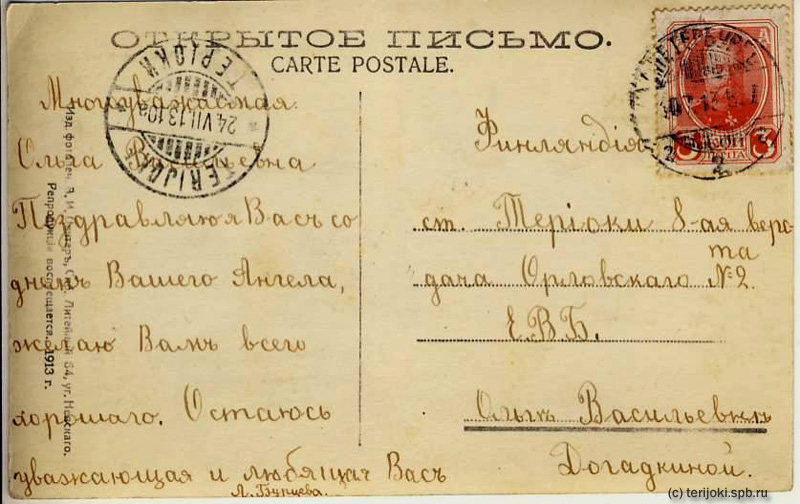 ОТКРЫТОЕ ПИСЬМО.
CARTE POSTALE.
ТЕРІОКИ
24.VII.13.10
TERIJOKI
Многоуважаемая
Ольга Васильевна
Поздравляю Васъ со
днемъ Вашего Ангела,
желаю Вамъ всего
хорошаго. Остаюсь
уважающая и любящая Васъ
Финляндія
ст. Теріоки 8-ая верста
дача Орловскаго №2.
Е.В.Б.
Ольгѣ Васильевнѣ
Догадкиной.
Литейный 64, уг. Невскаго.
Репродукція воспрещается. 1913 г.
(c) terijoki.spb.ru